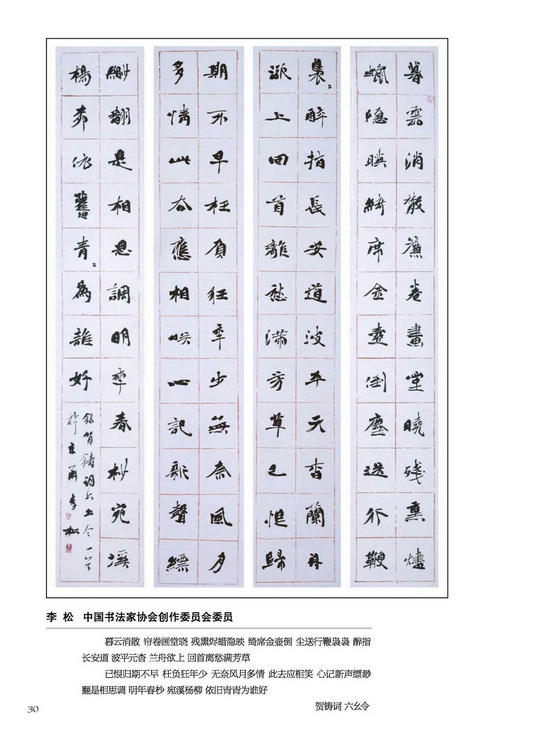 暮雲消散簾卷畫堂曉殘熏燼
蠟隱映綺席金壺倒塵送行鞭
裊〻醉指長安道波平天杳蘭舟
欲上回首離愁滿芳草已恨歸
期不早枉負狂年少無奈風月
多情此去應相笑心記新聲縹
緲翻是相思調明年春杪宛溪
楊柳依舊青〻為誰好
錄賀鑄詞六幺令一首
於京華李松
李 松 中国书法家协会创作委员会委员
暮云消散 帘卷画堂晓 残熏烬蜡隐映 绮席金壶倒 尘送行鞭袅袅 醉指
长安道 波平元杳 兰舟欲上 回首离愁满芳草
已恨归期不早 枉负狂年少 无奈风月多情 此去应相笑 心记新声缥缈
翻是相思调 明年春杪 宛溪杨柳 依旧青青为谁好
贺铸词 六幺令
30